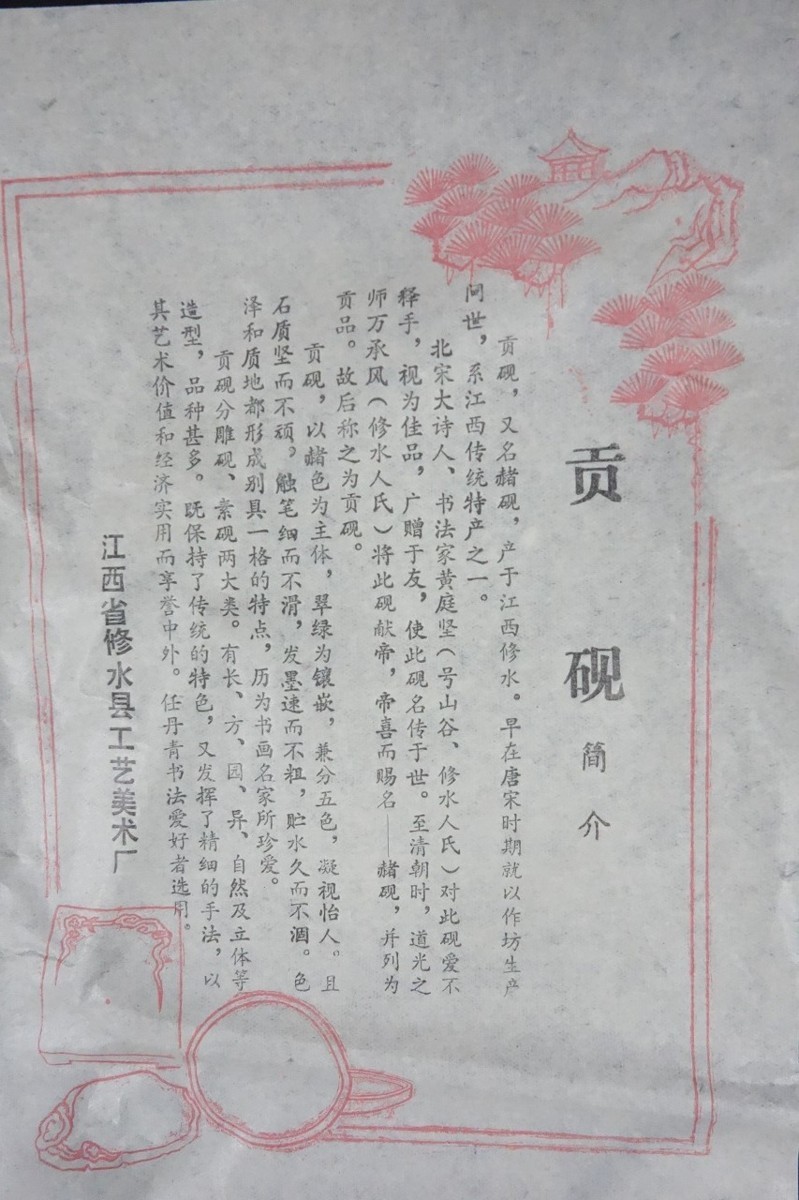 贡砚
简介
贡砚，又名赭砚，产于江西修水。早在唐宋时期就以作坊生产
问世，系江西传统特产之一。
北宋大诗人、书法家黄庭坚（号山谷、修水人氏）对此砚爱不
释手，视为佳品，广赠于友，使此砚名传于世。至清朝时，道光之
师万承风（修水人氏）将此砚献帝，帝喜而赐名——赭砚，并列为
贡品。故后称之为贡砚。
贡砚，以赭色为主体，翠绿为镶嵌，兼分五色，凝视怡人。且
石质坚而不顽。触笔细而不滑，发墨速而不粗，贮水久而不涸。色
泽和质地都形成别具一格的特点，历为书画名家所珍爱。
贡砚分雕砚、素砚两大类。有长、方、园、异、自然及立体等
造型，品种甚多。既保持了传统的特色，又发挥了精细的手法，以
其艺术价值和经济实用而享誉中外。任丹青书法爱好者选用。
江西省修水县工艺美术厂